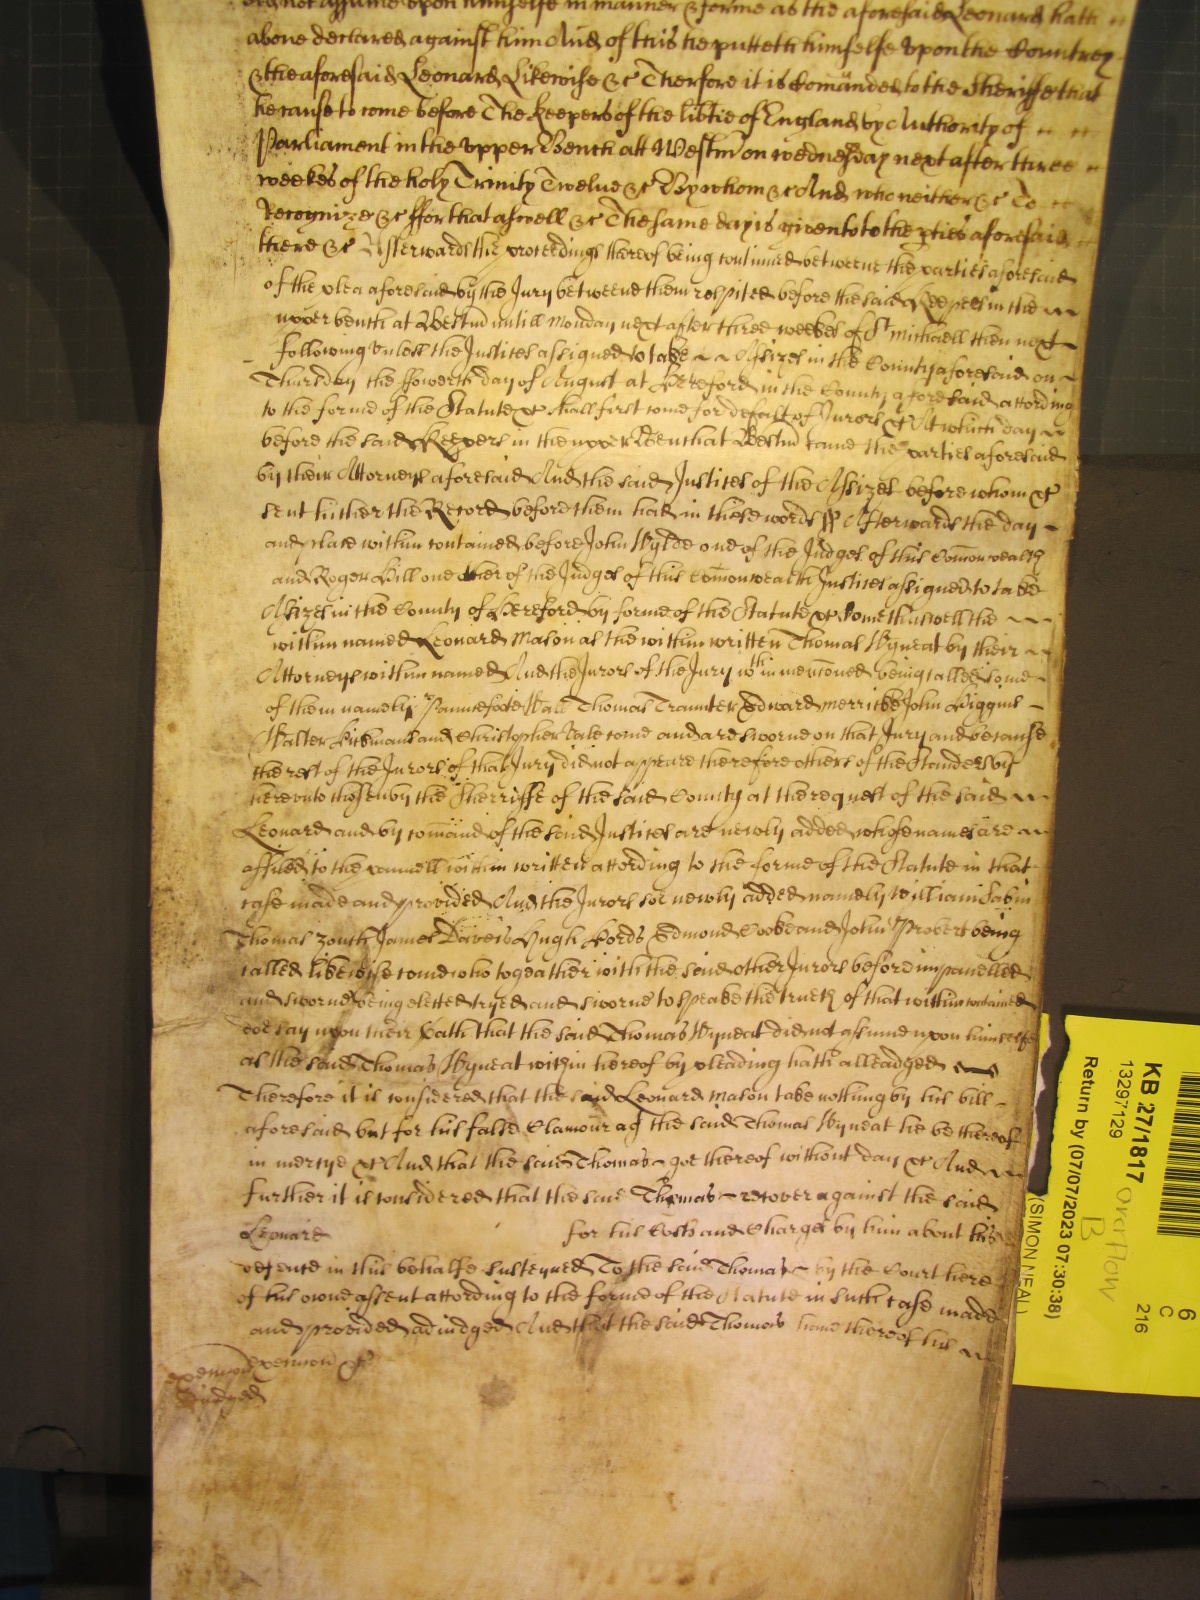 did not assume upon himselfe in manner & forme as the aforesaid Leonard hath
above declared against him And of this he putteth himselfe upon the Countrey
& the aforesaid Leonard Likewise &c Therfore it is Comanded to the Sheriffe that
he cause to come before The Keepers of the libtie of England by Authority of
Parliament in the upper Bench att Westm on wednesday next after three
weekes of the holy Trinity Twelve &c By whom &c And who neither &c To
Recognize &c ffor that aswell &c The same day is given to to the pties aforesaid
there &c Afterwards the proceedings thereof being continued betweene the parties aforesaid
of the plea aforesaid by the Jury betweene them respited before the said Keepers in the
upper bench at Westm untill Monday next after three weekes of St Michaell then next
following unless the Justices assigned to take Assizes in the County aforesaid on
Thursday the ffowerth day of August at Hereford in the County aforesaid according
to the forme of the Statute &c shall first come for default of Jurors &c At which day
before the said Keepers in the upper Bench at Westm came the parties aforesaid
by their Attorneys aforesaid And the said Justices of the Assizes before whom &c
sent hither the Record before them had in these words ss Afterwards the day
and place within contained before John Wylde one of the Judges of this Comonwealth
and Roger Hill one other of the Judges of this Comonwealth Justices assigned to take
Assizes in the County of Hereford by forme of the Statute &c Come aswell the
within named Leonard Mason as the within written Thomas Wyneat by their
Attorneys within named And the Jurors of the Jury wthin menconed being called some
of them namely Pauncefoote Wall Thomas Traunter Edward merricke John Higgins
Walter and Christopher Vale come and are sworne on that Jury and because
the rest of the Jurors of that Jury did not appeare therefore others of the Standers by
hereunto chosen by the Sherriffe of the said County at the request of the said
Leonard and by comand of the said Justices are newly added whose names are
affiled to the pannell within written according to the forme of the Statute in that
case made and provided And the Jurors soe newly added namely William
Thomas zouch James Daveis Hugh Lords Edmond Cooke and John Probert being
called likewise come who togeather with the said other Jurors before impanelled
and sworne being elected tryed and sworne to speake the trueth of that within contained
doe say upon their Oath that the said Thomas Wyneat did not assume upon himselfe
as the said Thomas Wyneat within hereof by pleading hath alleadged
Therefore it is considered that the said Leonard Mason take nothing by his bill
aforesaid but for his false Clamour agt the said Thomas Wyneat he be thereof
in mercye &c And that the said Thomas goe thereof without day &c And
further it is considered that the said Thomas recover against the said
Leonard for his Costs and Charges by him about his
defence in this behalfe susteyned To the said Thomas by the Court here
of his owne assent according to the forme of the Statute in such case made
and provided adiudged And that the said Thomas have thereof his
execucon &c
Judged
KB 27/1817
13297129
Return by (07/07/2023 07:30:38)
(SIMON NEAL)
overflow
B
6
C
216